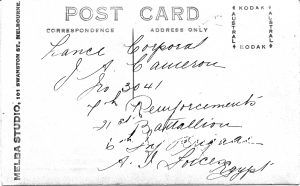 POST CARD
CORRESPONDENCE
ADDRESS ONLY
MELBA STUDIO, 101 SWANSTON ST, MELBOURNE.
AUSTRAL
KODAK
KODAK
AUSTRAL
Lance Corporal
J A Cameron
No 3041
7th Reinforcements
21st Battallion
6th Inf Brigade
A. I. Forces
Egypt